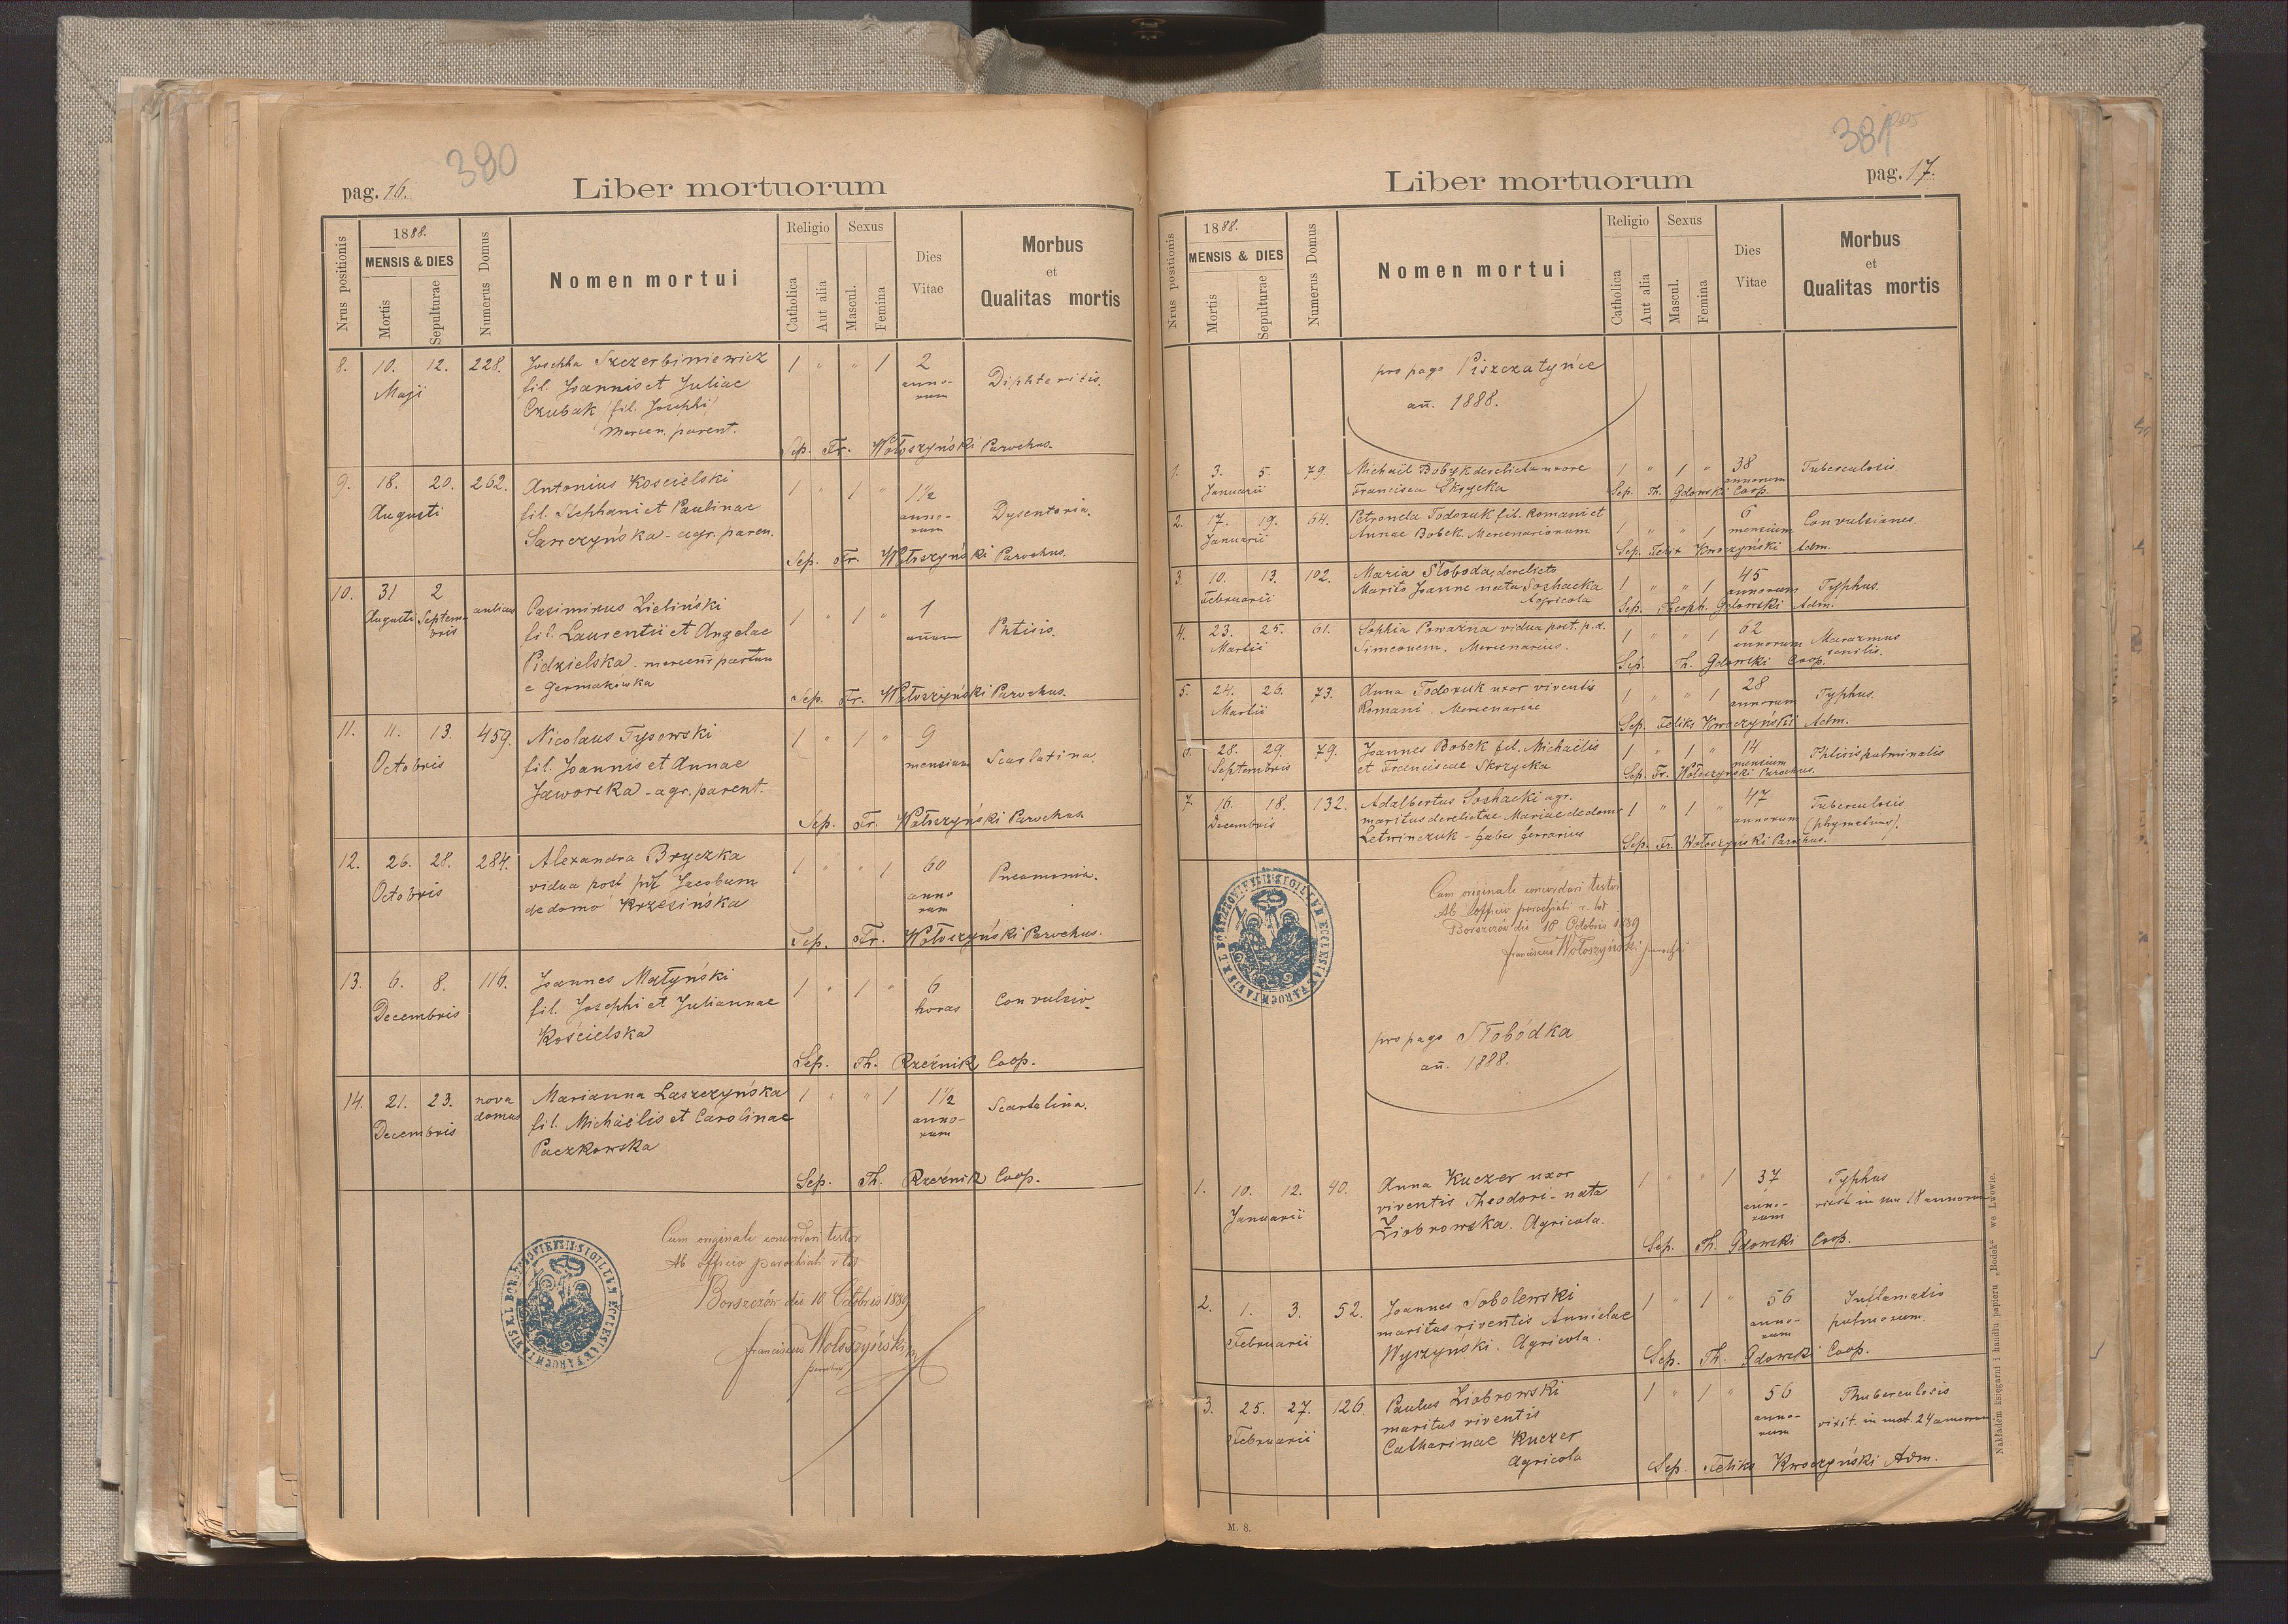 380
pag. 16.
Liber mortuorum
Nrus positionis
1888.
MENSIS & DIES
Mortis
Sepulturae
Numerus Domus
Nomen mortui
Religio
Catholica
Aut alia
Sexus
Mascul.
Femina
Dies
Vitae
Morbus
et
Qualitas mortis
8. 10. 12. 228. Josepha Szczerbiniewicz 1 " " 1 2
Maji fil. Joannis et Juliae anno- Diphteritis.
Czubak fil. Josephi rum
Mercen. parent.
Sep. Fr. Wołoszyński Parochus.
9. 18. 20. 262. Antonius Kościelski 1 " 1 " 1½
Augusti fil. Stephani et Paulinae anno- Dysentoria.
Sawczyńska - agr. paren. rum
Sep. Fr. Wołoszyński Parochus.
10. 31 2 aulicus Casimirus Zieliński 1 " 1 " 1
Augusti Septem- fil. Laurentii et Angelae annum Phtisis.
bris Pidzielska - mercen.
e Germakówka
Sep. Fr. Wołoszyński Parochus.
11. 11. 13. 459. Nicolaus Tysowski 1 " 1 " 9
Octobris fil. Joannis et Annae mensium Scarlatina.
Jaworska - agr. parent.
Sep. Fr. Wołoszyński Parochus
12. 26. 28. 284. Alexandra Bryczka 1 " " 1 60
Octobris vidua post Jacobum anno Pneumonia.
de domo Krzesińska rum
Sep. Fr. Wołoszyński Parochus.
13. 6. 8. 116. Joannes Matyński 1 " 1 " 6
Decembris fil. Josephi et Juliannae horas Convulsio
Kościelska
Sep. Th. Rzeźnik Coop.
14. 21. 23. nova domus Marianna Laszczyńska 1 " " 1 1½
Decembris fil. Michaëlis et Carolinae anno- Scarlatina.
Paczkowska rum
Sep. Th. Rzeźnik Coop.
Cum originale concordari testor
Ab officio parochiali r. lat
Borszczów die 10 Octobris 1889
Franciscus Wołoszyński
parochus
381
pag. 17.
Liber mortuorum
Nrus positionis
1888.
MENSIS & DIES
Mortis
Sepulturae
Numerus Domus
Nomen mortui
Religio
Catholica
Aut alia
Sexus
Mascul.
Femina
Dies
Vitae
Morbus
et
Qualitas mortis
pro pago Piszczatyńce
añ. 1888.
1. 3. 5. 79. Michail Bobyk derelicta uxore 1 " 1 " 38 Tuberculosis
Januarii Francisca Skrycka annorum
Sep. Th. Gdowski Coop.
2. 17. 19. 64. Petronela Todozuk fil. Romani et 6 Convulsiones
Januarii Annae Bobek. Mercenariorum 1 " " 1 mensium
Sep. Felix Kwoczyński Adm.
3. 10. 13. 102. Maria Słoboda, derelicto 45
Februarii Marito Joanne nata Soshacka 1 " " 1 annorum Typhus.
Agricola
Sep. Theoph. Gdowski Adm.
4. 23. 25. 61. Sophia Poważna vidua post. p.d. 1 " " 1 62 Marazmus
Martii Simeonem. Mercenarius. annorum senilis.
Sep. Th. Gdowski Coop.
5. 24. 26. 73. Anna Todozuk uxor viventis 1 " " 1 28 Typhus.
Martii Romani. Mercenariae annorum
Sep. Feliks Kwoczyński Adm.
6. 28. 29. 79. Joannes Bobek fil. Michaëlis 1 " 1 " 14 Phtisis pulminalis
Septembris et Franciscae Skrzycka mensium
Sep. Fr. Wołoszyński Parochus.
7. 16. 18. 132. Adalbertus Soshacki agr. 1 " 1 " 47 Tuberculosis
Decembris maritus derelictae Mariae de domo annorum (phymatum).
Letwinczuk - faber ferrarius
Sep. Fr. Wołoszyński Parochus.
Cum originale concordari testor
Ab officio parochiali r. lat
Borszczów die 10. Octobris 1889
Franciscus Wołoszyński parochus
pro pago Słobódka
añ. 1888.
1. 10. 12. 40. Anna Kuczer uxor 1 " " 1 37 Typhus
Januarii viventis Theodori - nata anno- vixit in 18 annorum
Ziobrowska. Agricola. rum
Sep. Th. Gdowski Coop.
2. 1. 3. 52. Joannes Sobolewski 1 " 1 " 56 Inflamatio
Februarii maritus viventis Annielae anno- pulmorum
Wyszyński. Agricola. rum
Sep. Th. Gdowski Coop.
3. 25. 27. 126. Paulus Ziobrowski 1 " 1 " 56 Thuberculosis
Februarii maritus viventis anno- vixit. in mat. 24 annorum
Catharinae Kuczer rum
Agricola
Sep. Feliks Kwoczyński Adm.
M. 8.
Nakładem księgarni i handlu papieru „Bodek" we Lwowie.